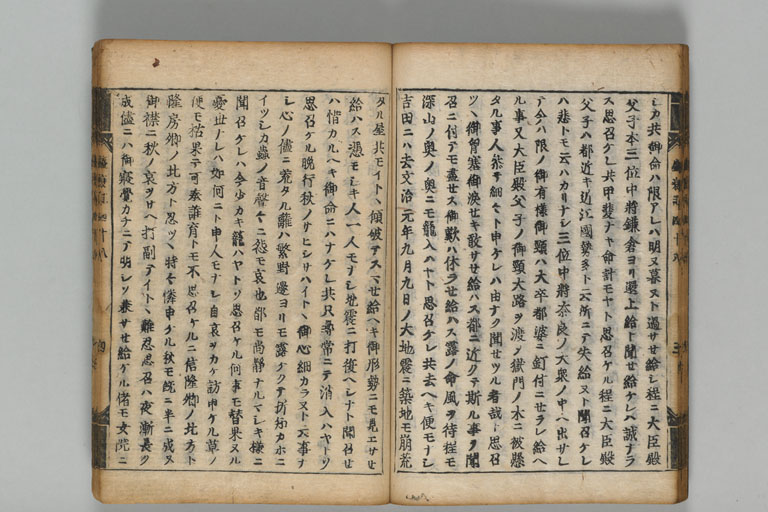 シカ共御命ハ限アレハ明ヌ暮ヌト過サセ給シ程ニ大臣殿
父子本三位中將鎌倉ヨリ還上給ト聞セ給ケレバ誠ナラ
ス思召ケレ共甲斐ナキ命計モヤト思召ケル程ニ大臣殿
父子ハ都近キ近江國勢多ト云所ニテ失給ヌト聞召ケレ
ハ悲トモ云ハカリナシ三位中將奈良ノ大衆ノ中ヘ出サレ
テ今ハ限ノ御有樣御頸ハ大卒都婆ニ釘付ニセラレ給ヘ
ル事又大臣殿父子ノ御頸大路ヲ渡ノ獄門ノ木ニ被懸
タル事人參テ細々ト申ケレハ由ナク聞セツル者哉ト思召
ツヽ御胷塞御涙セキ敢サセ給ハス都ニ近クテ斯ル事ヲ聞
召ニ付テモ盡セス御歎ハ休ラセ給ハス露ノ命風ヲ待程モ
深山ノ奥ノ奥ニモ籠入ハヤト思召ケレ共去ヘキ便モナシ
吉田ニハ去文治元年九月九日ノ大地震ニ築地モ崩荒
タル屋共モイトヽ傾破テスマセ給ヘキ御形勢ニモ見エサセ
給ハス憑モシキ人一人モナシ地震ニ打復ヘシナト聞召セ
ハ惜カルヘキ御命ニハナケレ共只尋常ニテ消入ハヤトソ
思召ケル晩行秋ノサヒシサハイトヽ御心細カラヌト云事ナ
シ心ノ儘ニ荒タル籬ハ繁野邊ヨリモ露ケクテ折知カホニ
イツシカ蟲ノ音聲々ニ恐モ哀也都モ尚靜ナルマシキ樣ニ
聞召ケレハ今少カキ籠ハヤトソ思召ケル何事モ替果ヌル
憂世ナレハ如何ニト申人モナシ自哀ヲカケ訪申ケル草ノ
便モ枯果テ可奉誰育トモ不思召ケルニ信隆卿ノ北方ト
隆房卿ノ北方ト忍ツヽ時々憐申ケル秋モ既ニ半ニ成ヌ
御襟ニ秋ノ哀ヲサヘ打副テイトヽ難忍思召ハ夜漸長ク
成儘ニハ御寢覺カチニテ明シソ兼サセ給ケル偖モ女院ニ